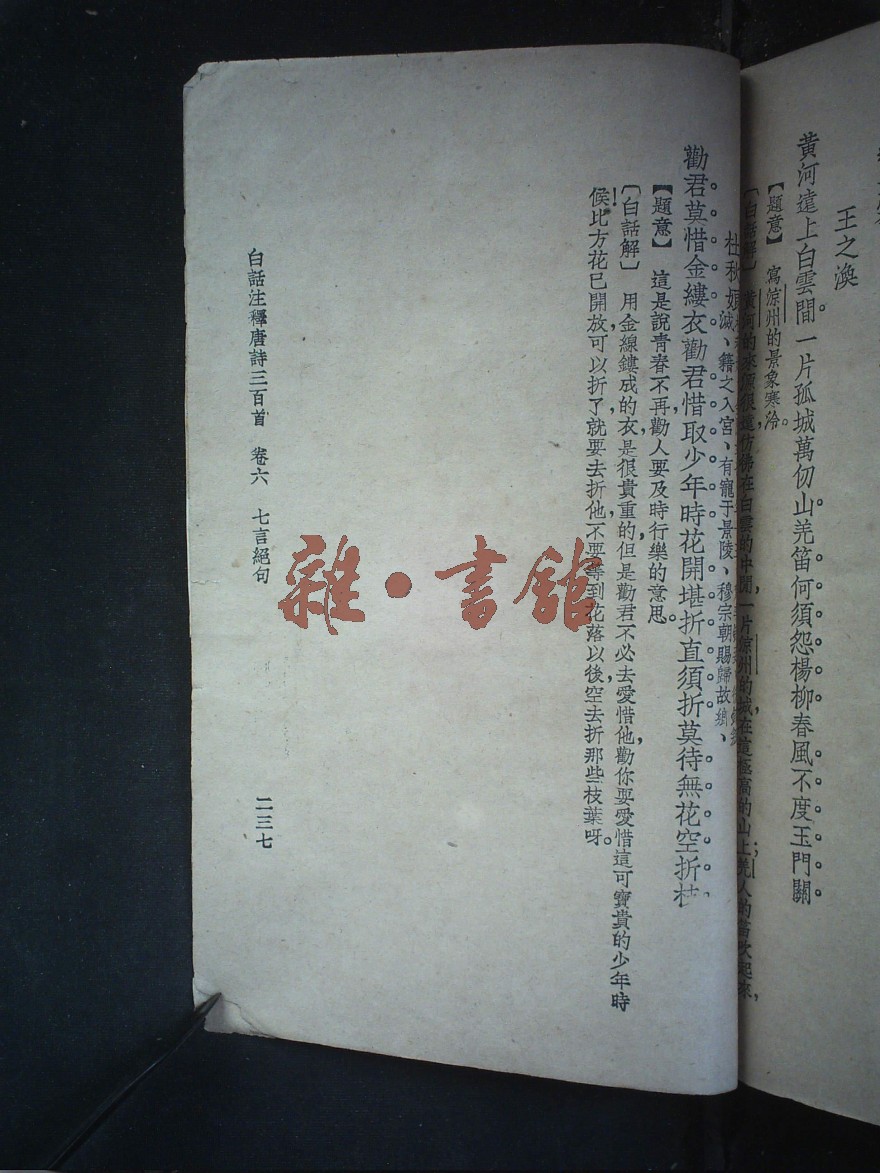 王之渙
黃河遠上白雲間。一片孤城萬仞山。羌笛何須怨楊柳。春風不度玉門關。
【題意】 寫涼州的景象寒冷。
〔白話解〕 黃河的來源很遠，彷彿在白雲的中間，一片涼州的城，在這極高的山上；羌人的笛吹起來，
杜秋娘
滅、籍之入宮、有寵于景陵、穆宗朝賜歸故鄉、
勸君莫惜金縷衣。勸君惜取少年時。花開堪折直須折。莫待無花空折枝。
【題意】 這是說青春不再，勸人要及時行樂的意思。
〔白話解〕 用金線鏤成的衣，是很貴重的，但是勸君不必去愛惜他，勸你要愛惜這可寶貴的少年時
候，比方花已開放，可以折了，就要去折他，不要等到花落以後，空去折那些枝葉呀。
白話注釋唐詩三百首 卷六 七言絕句 二三七
雜·書館